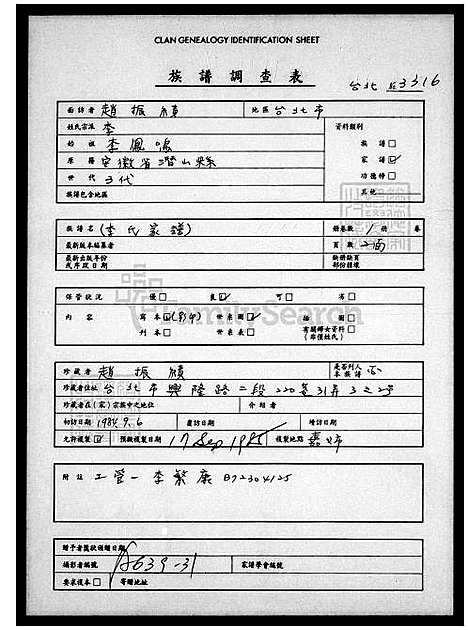 CLAN GENEALOGY IDENTIFICATION SHEET
族譜調查表
台北 3316
面訪者 趙振績 地區 台北市
姓氏宗派 李 資料類別
始祖 李鳳鳴 族譜□
原籍 安徽省潛山縣 家譜☑
世代 3代 功德特□
族譜包含地區 其他
族譜名 (李氏家譜) 冊卷數 1 冊 卷
最新版本編纂者 頁數 2面
最新出版年份或序跋日期 缺冊缺頁部份種壞
保管狀況 優□ 良☑ 可□ 劣□
內容 寫本☑(影印) 世系圖☑ 插圖□
刊本□ 世系表□ 有關婦女資料□(席僅姓氏)
珍藏者 趙振績 是否列入本族譜 否
珍藏者住址 台北市興隆路二段220巷31弄3之2号
珍藏者在(家)宗族中之地位 介紹者
初訪日期 1984.9.6 覆訪日期 增訪日期
允許複製☑ 預擬複製日期 17 Sep 1985 複製地點
附註 工營一李繁康 B72304125
贈予者獎狀領贈日期
攝影者編號 A639-31 家譜學會編號
要求復本□ 寄贈地址
FamilySearch